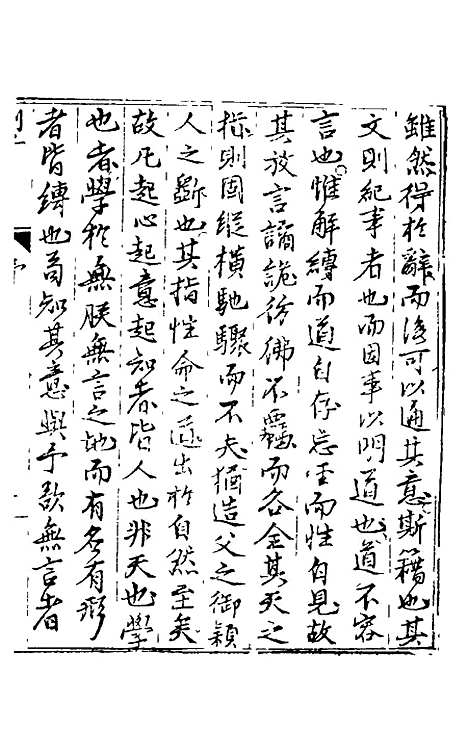 雖然得於辭而後可以通其意斯籍也其
文則紀事者也而因事以明道也道不容
言也惟解縛而道自存忘言而性自見故
其放言譎詭彷彿不羈而各全其天之
樞則固縱橫馳驟而不失猶造父之御穎
人之斲也其指性命之道出於自然至矣
故凡起心起意起知者皆人也非天也學
也者學於無朕無言之地而有名有形
者皆縛也苟知其意與予欲無言者